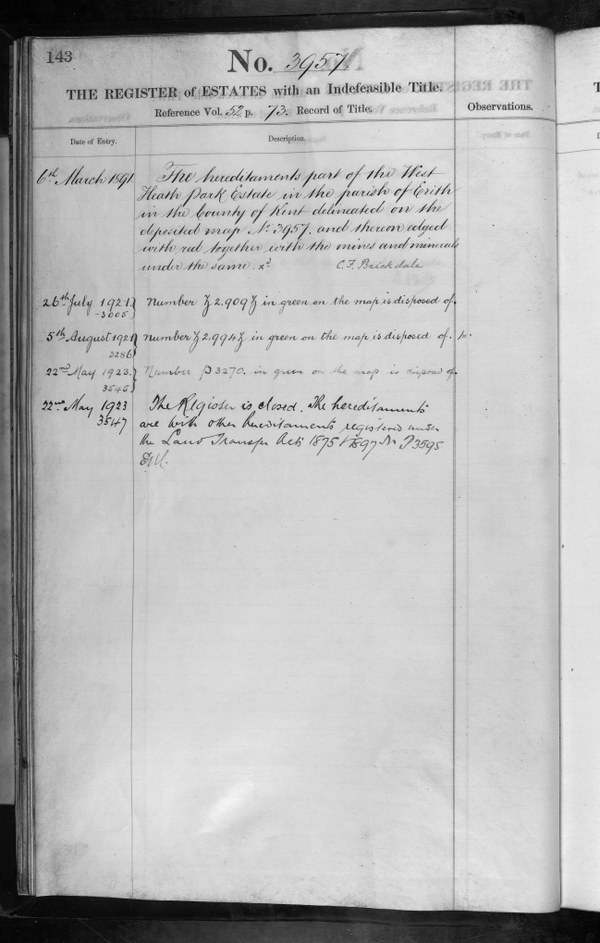 143
No. 3957.
THE REGISTER of ESTATES with an Indefeasible Title.
Reference Vol. 52 p. 73. Record of Title.
Observations.
Date of Entry.
Description.
6th March 1891
The hereditaments part of the West
Heath Park Estate in the parish of Erith
in the County of Kent delineated on the
deposited map No. 3957. and thereon edged
with red together with the mines and minerals
under the same.
C.F. Brickdale
26th July 1921.
3005
Number 2.909 in green on the map is disposed of.
5th August 1921
3286
number 2.994 in green on the map is disposed of.
22nd May 1923.
3545
Number P3270. in green on the map is disposed of.
22nd May 1923
3547
The Register is closed. The hereditaments
are with other hereditaments registered under
the Land Transfer Acts 1875 & 1897 No P3595